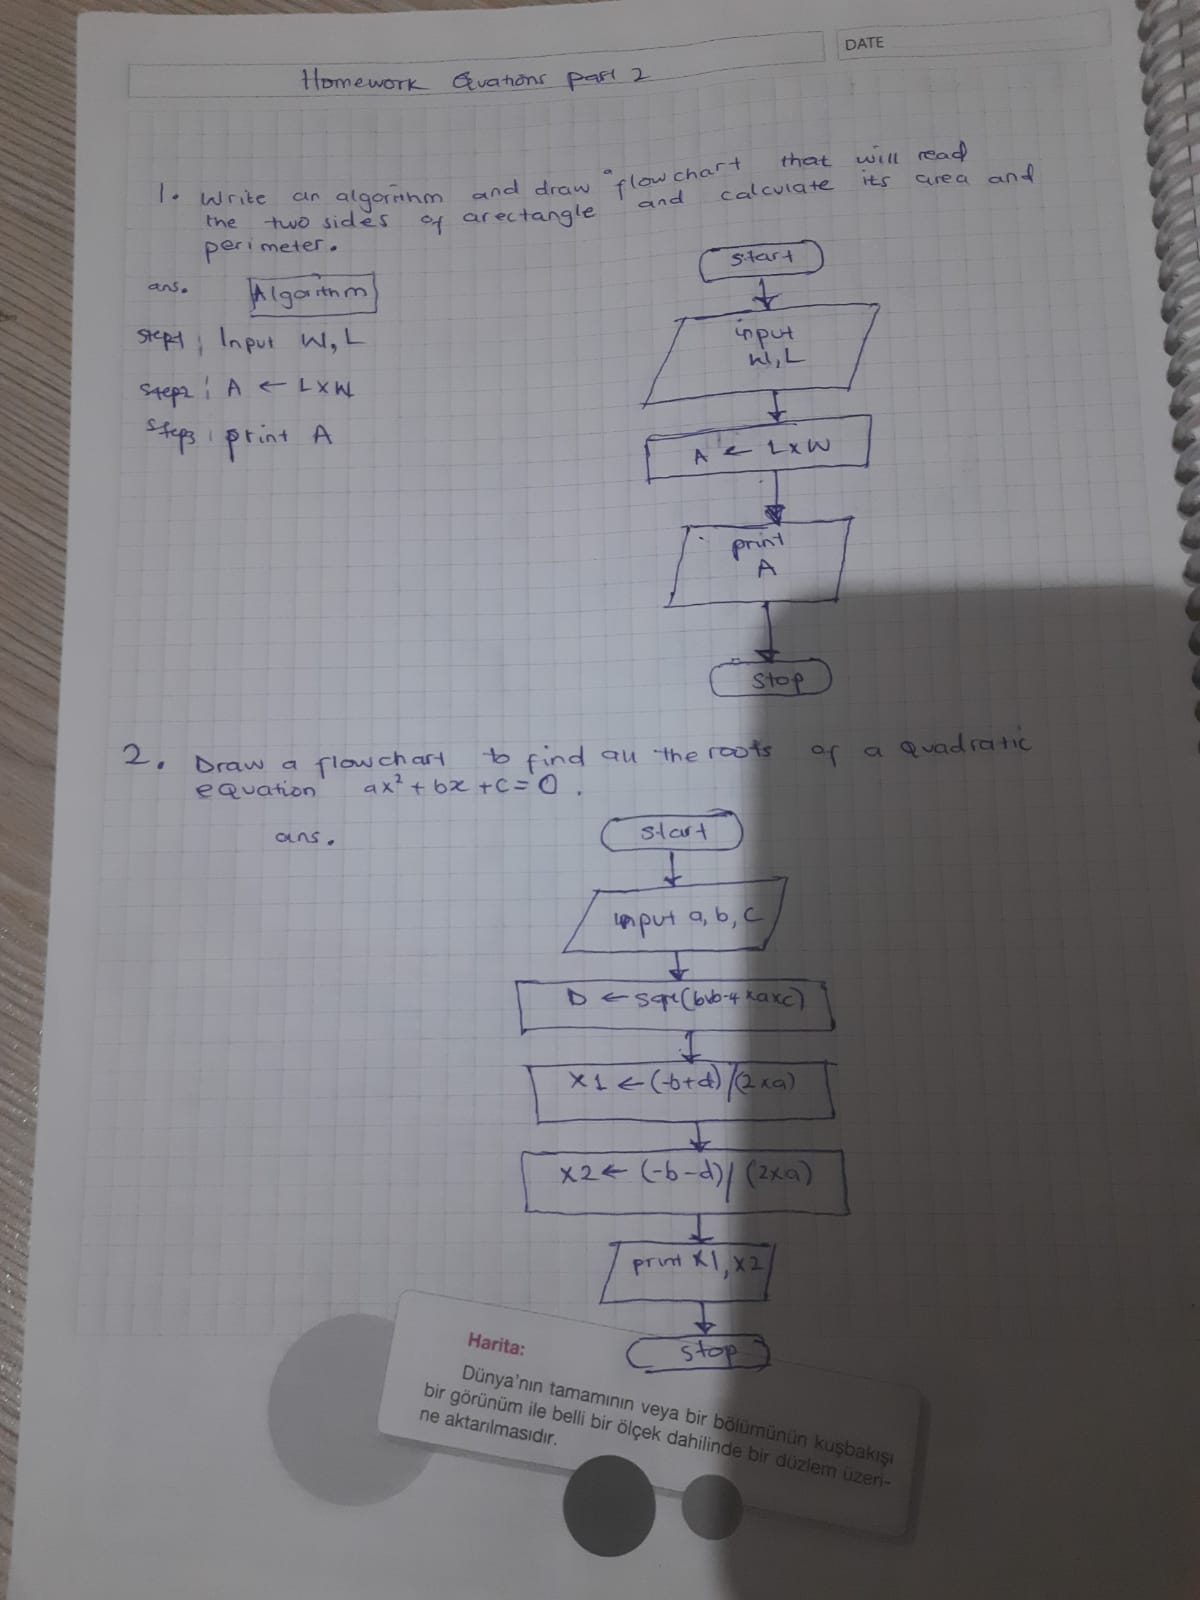 DATE
Homework Quations part 2
1. Write an algorithm and draw a flowchart that will read
the two sides of a rectangle and calculate its area and
perimeter.
ans. Algorithm
Step1; Input W, L
Step2; A ← L x W
Step3; print A
start
input
W, L
A ← L x W
print
A
stop
2. Draw a flowchart to find all the roots of a quadratic
equation ax² + bx + c = 0.
ans.
start
input a, b, c
D ← sqrt(bxb-4xaxc)
x1 ← (-b+d)/(2xa)
x2 ← (-b-d)/(2xa)
print x1, x2
stop
Harita:
Dünya'nın tamamının veya bir bölümünün kuşbakışı
bir görünüm ile belli bir ölçek dahilinde bir düzlem üzeri-
ne aktarılmasıdır.